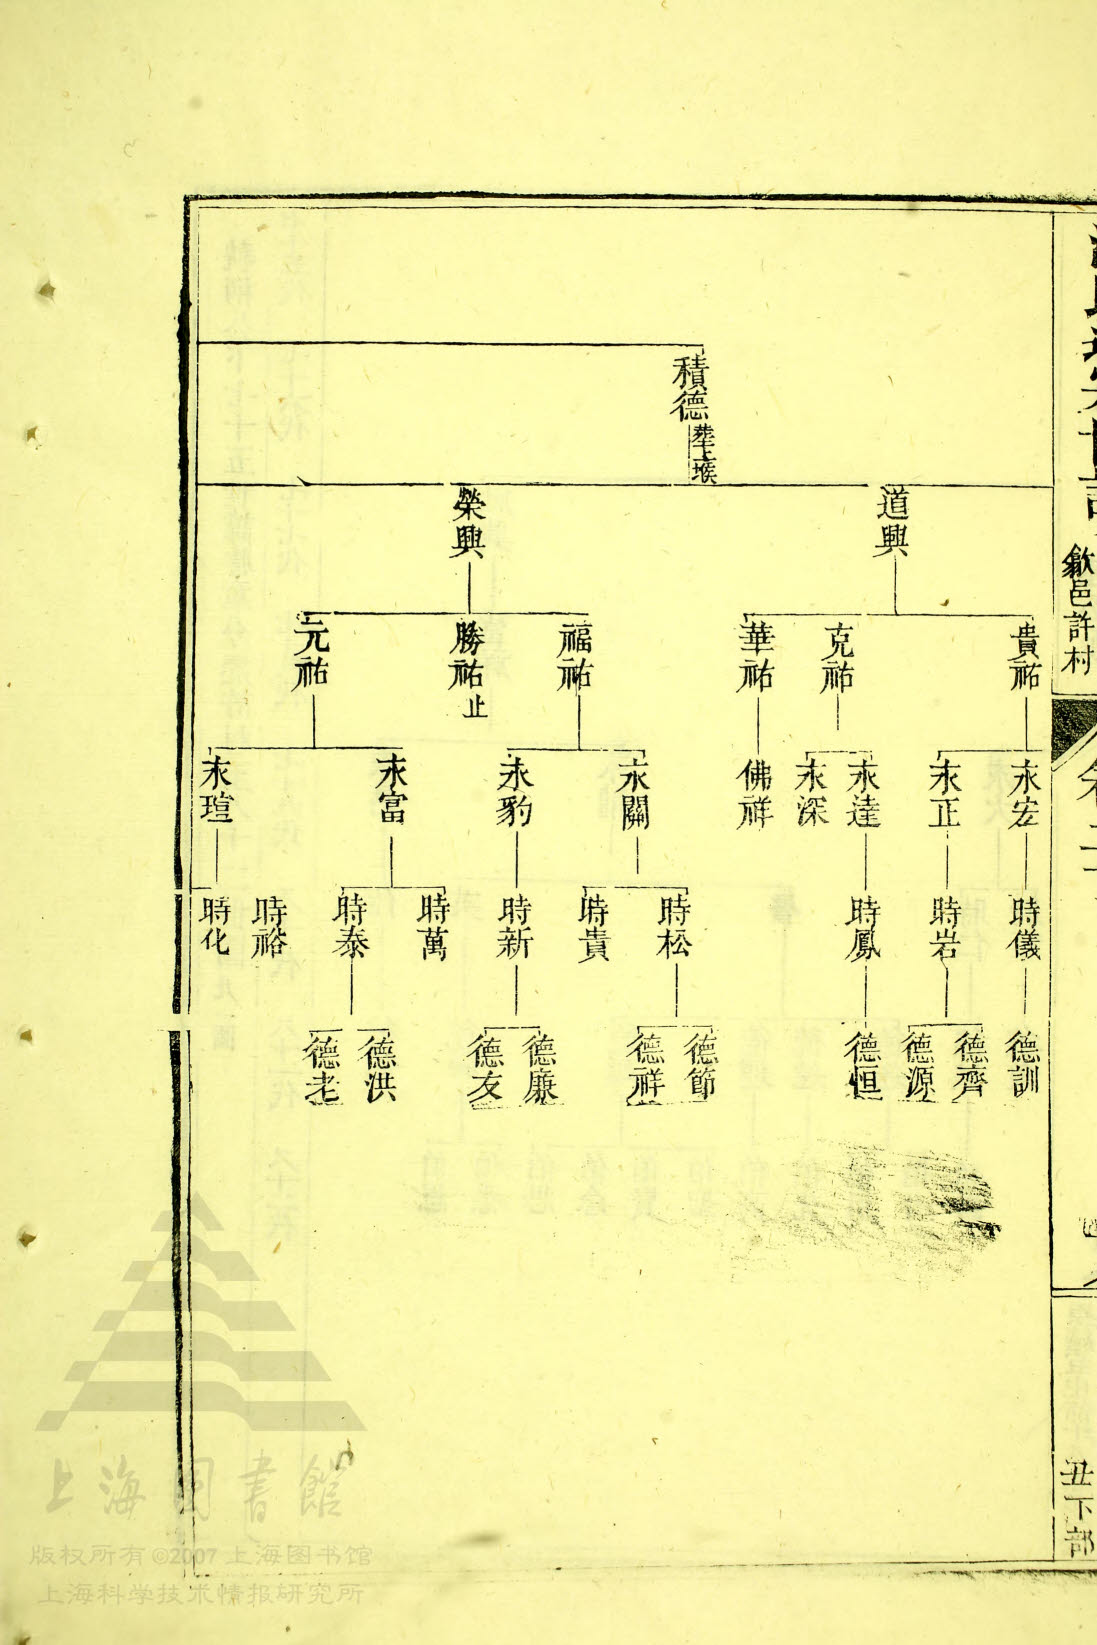 歙邑許村
丑下部
積德 葬上堠
道興 榮興
貴祐 克祐 華祐 福祐 勝祐止 元祐
永宏 永正 永達 永深 佛祥 永關 永豹 永富 永瑄
時儀 時岩 時鳳 時松 時貴 時新 時萬 時泰 時裕 時化
德訓 德齊 德源 德恒 德節 德祥 德廉 德友 德洪 德老
上海图書館
版权所有©2007上海图书馆
上海科学技术情报研究所